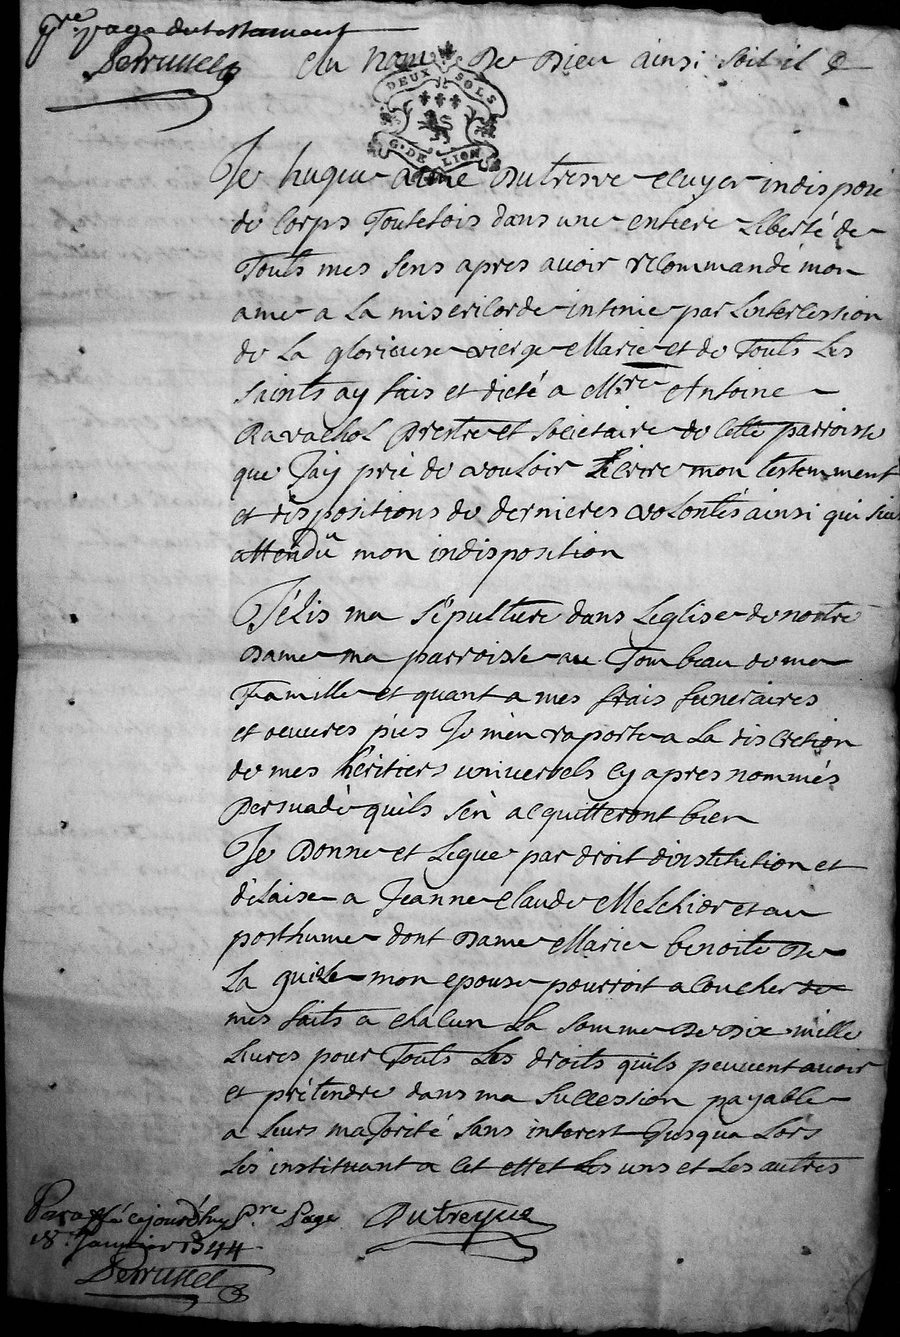 pre page du testament
Au Nom De Dieu ainsi soit il
DEUX SOLS
G. DE LION
Je hugue aimé Dutreyve Ecuyer indisposé
de Corps Toutefois dans une entiere Liberté de
Touts mes sens apres avoir recommandé mon
ame a La misericorde infinie par Lintercession
de La glorieuse vierge Marie et de Touts Les
saints ay fais et dicté a Mre Antoine
Ravachol Prestre et societaire de Cette parroisse
que Jay prié de vouloir Ecrire mon testemment
et dispositions de dernieres volontés ainsi qui suit
attendu mon indisposition
J'élis ma sépulture dans Leglise de nottre
Dame ma parroisse au Tombeau de me
Famille et quant a mes frais funeraires
et oeuvres pies Je m'en raporte a La discretion
de mes héritiers universels cy apres nommés
Persuadé quils s'en acquitteront bien
Je Donne et Legue par droit dinstitution et
délaise a Jeanne Claude Melchior et au
posthume dont Dame Marie benoite De
La guiole mon epouse pourroit acoucher de
mes faits a chacun La somme De Dix mille
Livres pour Touts Les droits quils peuvent avoir
et prétendre dans ma succession payable
a Leurs majorité sans interest Jusqua Lors
Les instituant a cet effet Les uns et Les autres
Paraffé cejourdhuy pre page Dutreyve
18 Janvier 1744